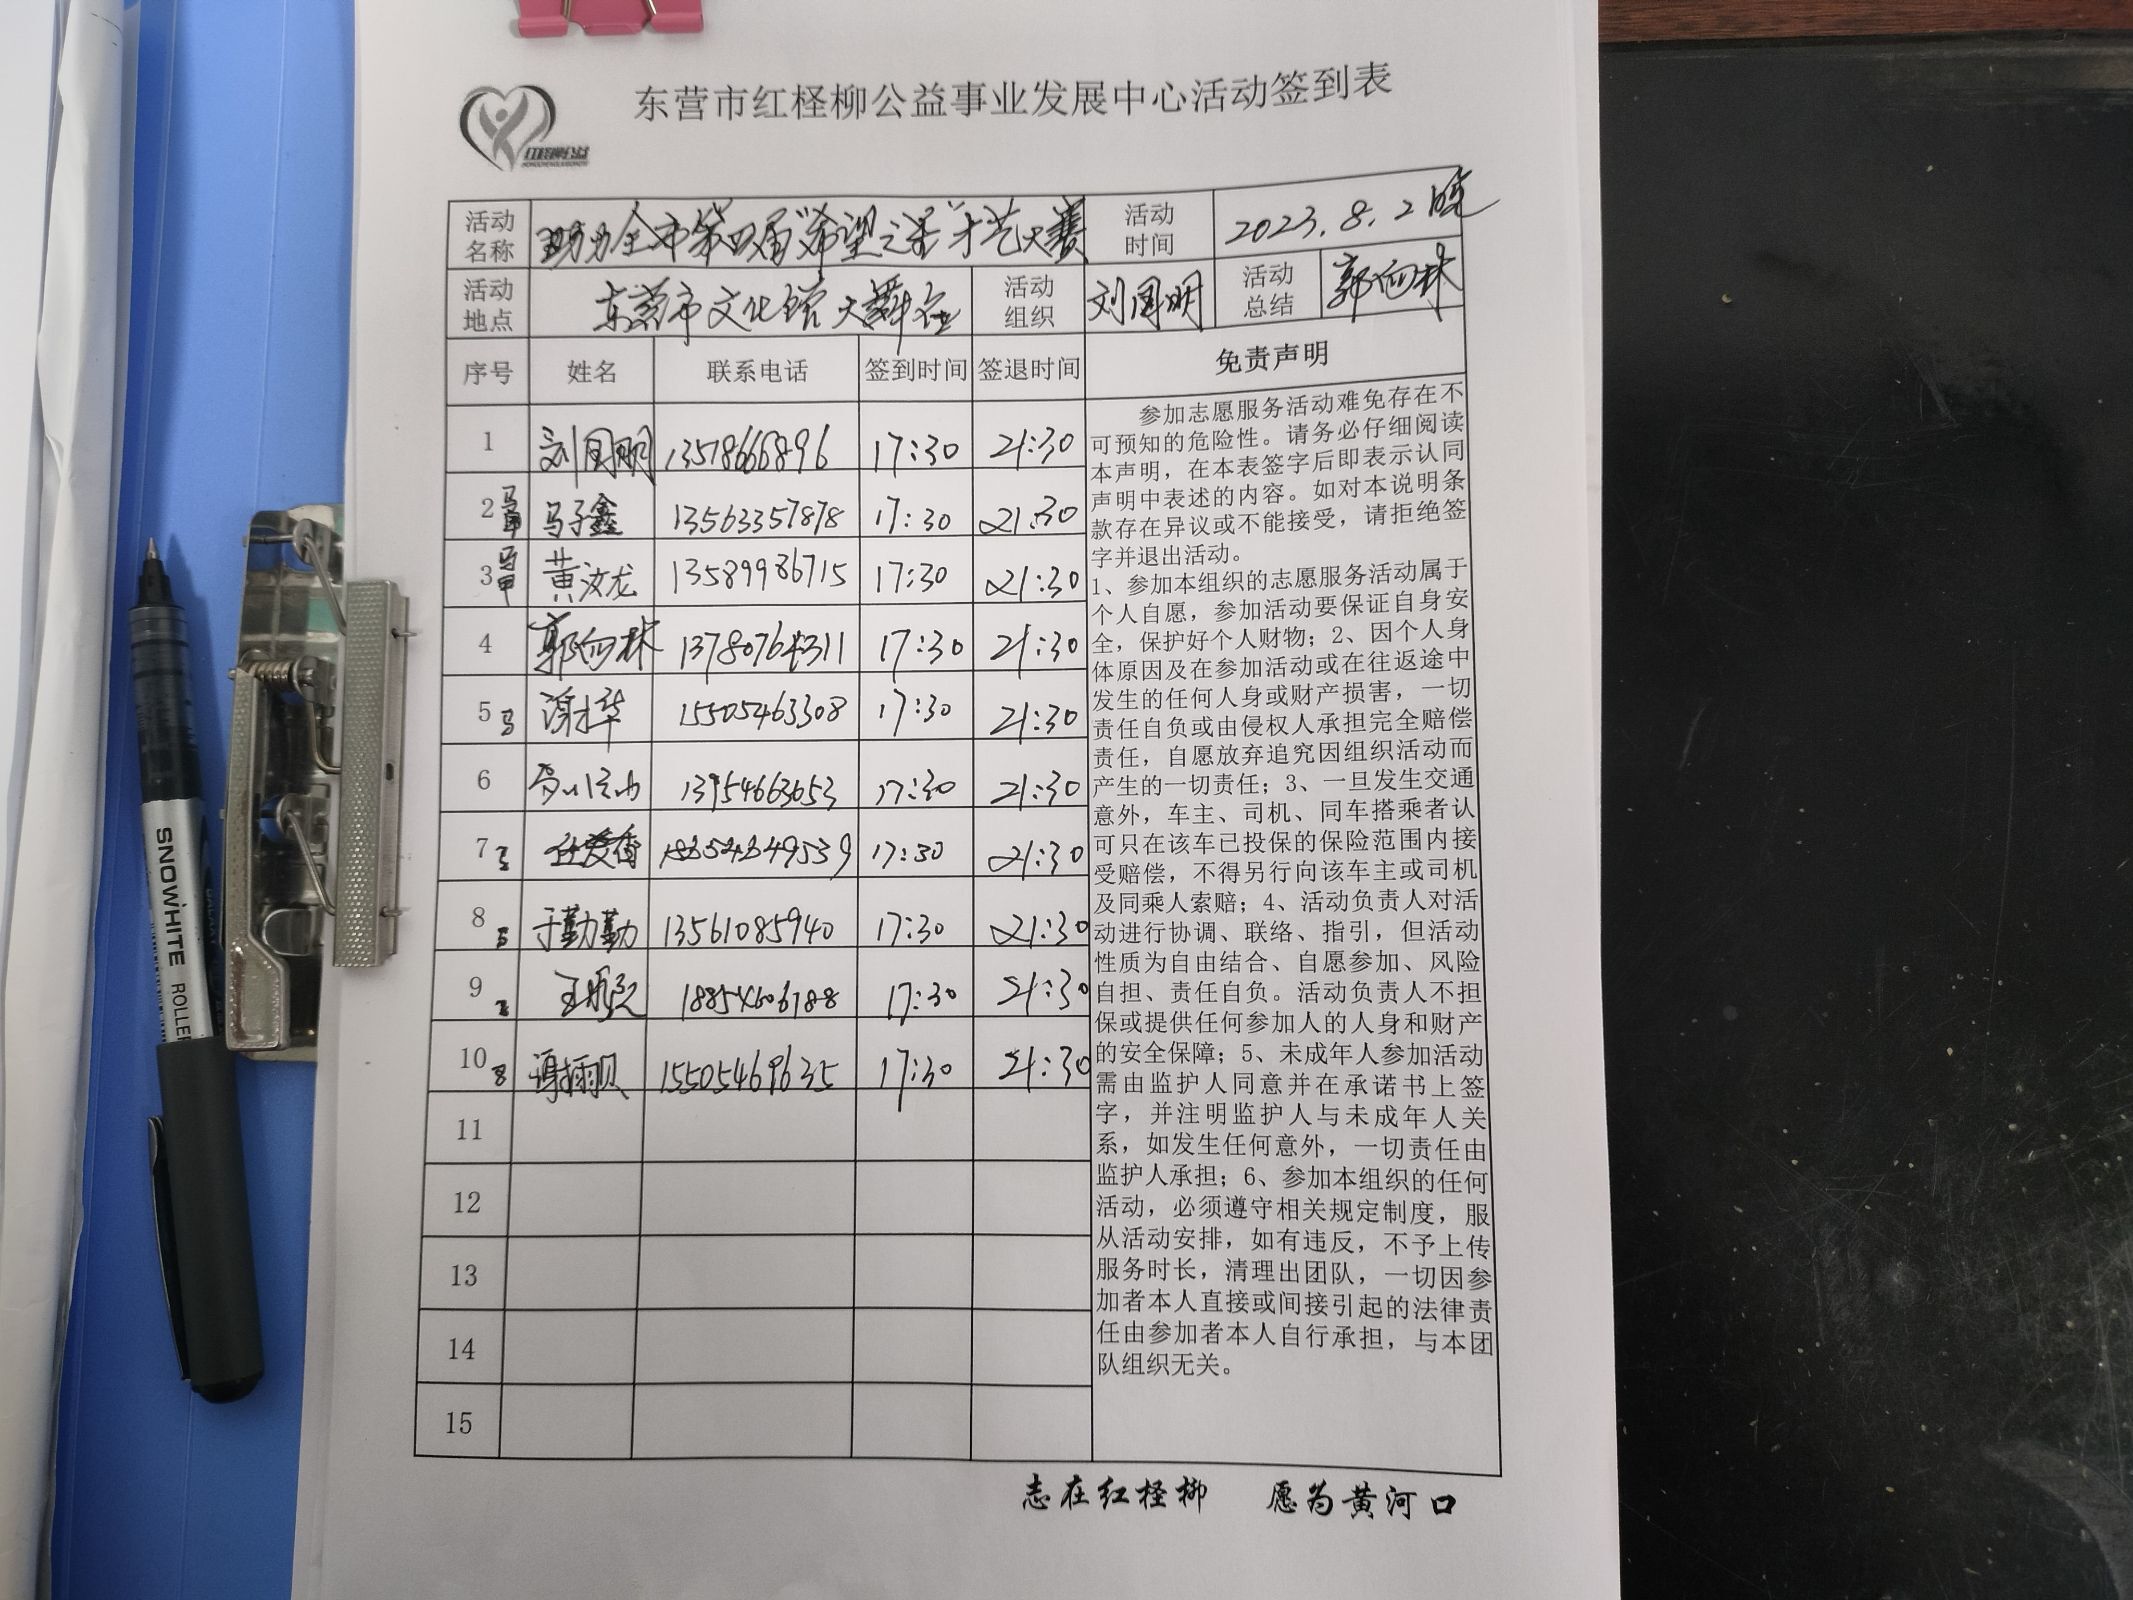 东营市红柽柳公益事业发展中心活动签到表
红柽柳公益
活动名称 助力全市第四届“希望之星”才艺大赛 活动时间 2023.8.2晚
活动地点 东营市文化馆大舞台 活动组织 刘国明 活动总结 郭向林
序号 姓名 联系电话 签到时间 签退时间 免责声明
1 刘国明 13578666896 17:30 21:30
2 马子鑫 13563357878 17:30 21:30
3 黄汝龙 13589986715 17:30 21:30
4 郭向林 13780764311 17:30 21:30
5 15505463308 17:30 21:30
6 13954663653 17:30 21:30
7 17:30 21:30
8 于勤勤 13561085940 17:30 21:30
9 18854606788 17:30 21:30
10 15505469635 17:30 21:30
11
12
13
14
15
参加志愿服务活动难免存在不
可预知的危险性。请务必仔细阅读
本声明，在本表签字后即表示认同
声明中表述的内容。如对本说明条
款存在异议或不能接受，请拒绝签
字并退出活动。
1、参加本组织的志愿服务活动属于
个人自愿，参加活动要保证自身安
全，保护好个人财物；2、因个人身
体原因及在参加活动或在往返途中
发生的任何人身或财产损害，一切
责任自负或由侵权人承担完全赔偿
责任，自愿放弃追究因组织活动而
产生的一切责任；3、一旦发生交通
意外，车主、司机、同车搭乘者认
可只在该车已投保的保险范围内接
受赔偿，不得另行向该车主或司机
及同乘人索赔；4、活动负责人对活
动进行协调、联络、指引，但活动
性质为自由结合、自愿参加、风险
自担、责任自负。活动负责人不担
保或提供任何参加人的人身和财产
的安全保障；5、未成年人参加活动
需由监护人同意并在承诺书上签
字，并注明监护人与未成年人关
系，如发生任何意外，一切责任由
监护人承担；6、参加本组织的任何
活动，必须遵守相关规定制度，服
从活动安排，如有违反，不予上传
服务时长，清理出团队，一切因参
加者本人直接或间接引起的法律责
任由参加者本人自行承担，与本团
队组织无关。
志在红柽柳 愿为黄河口
SNOWHITE ROLLER